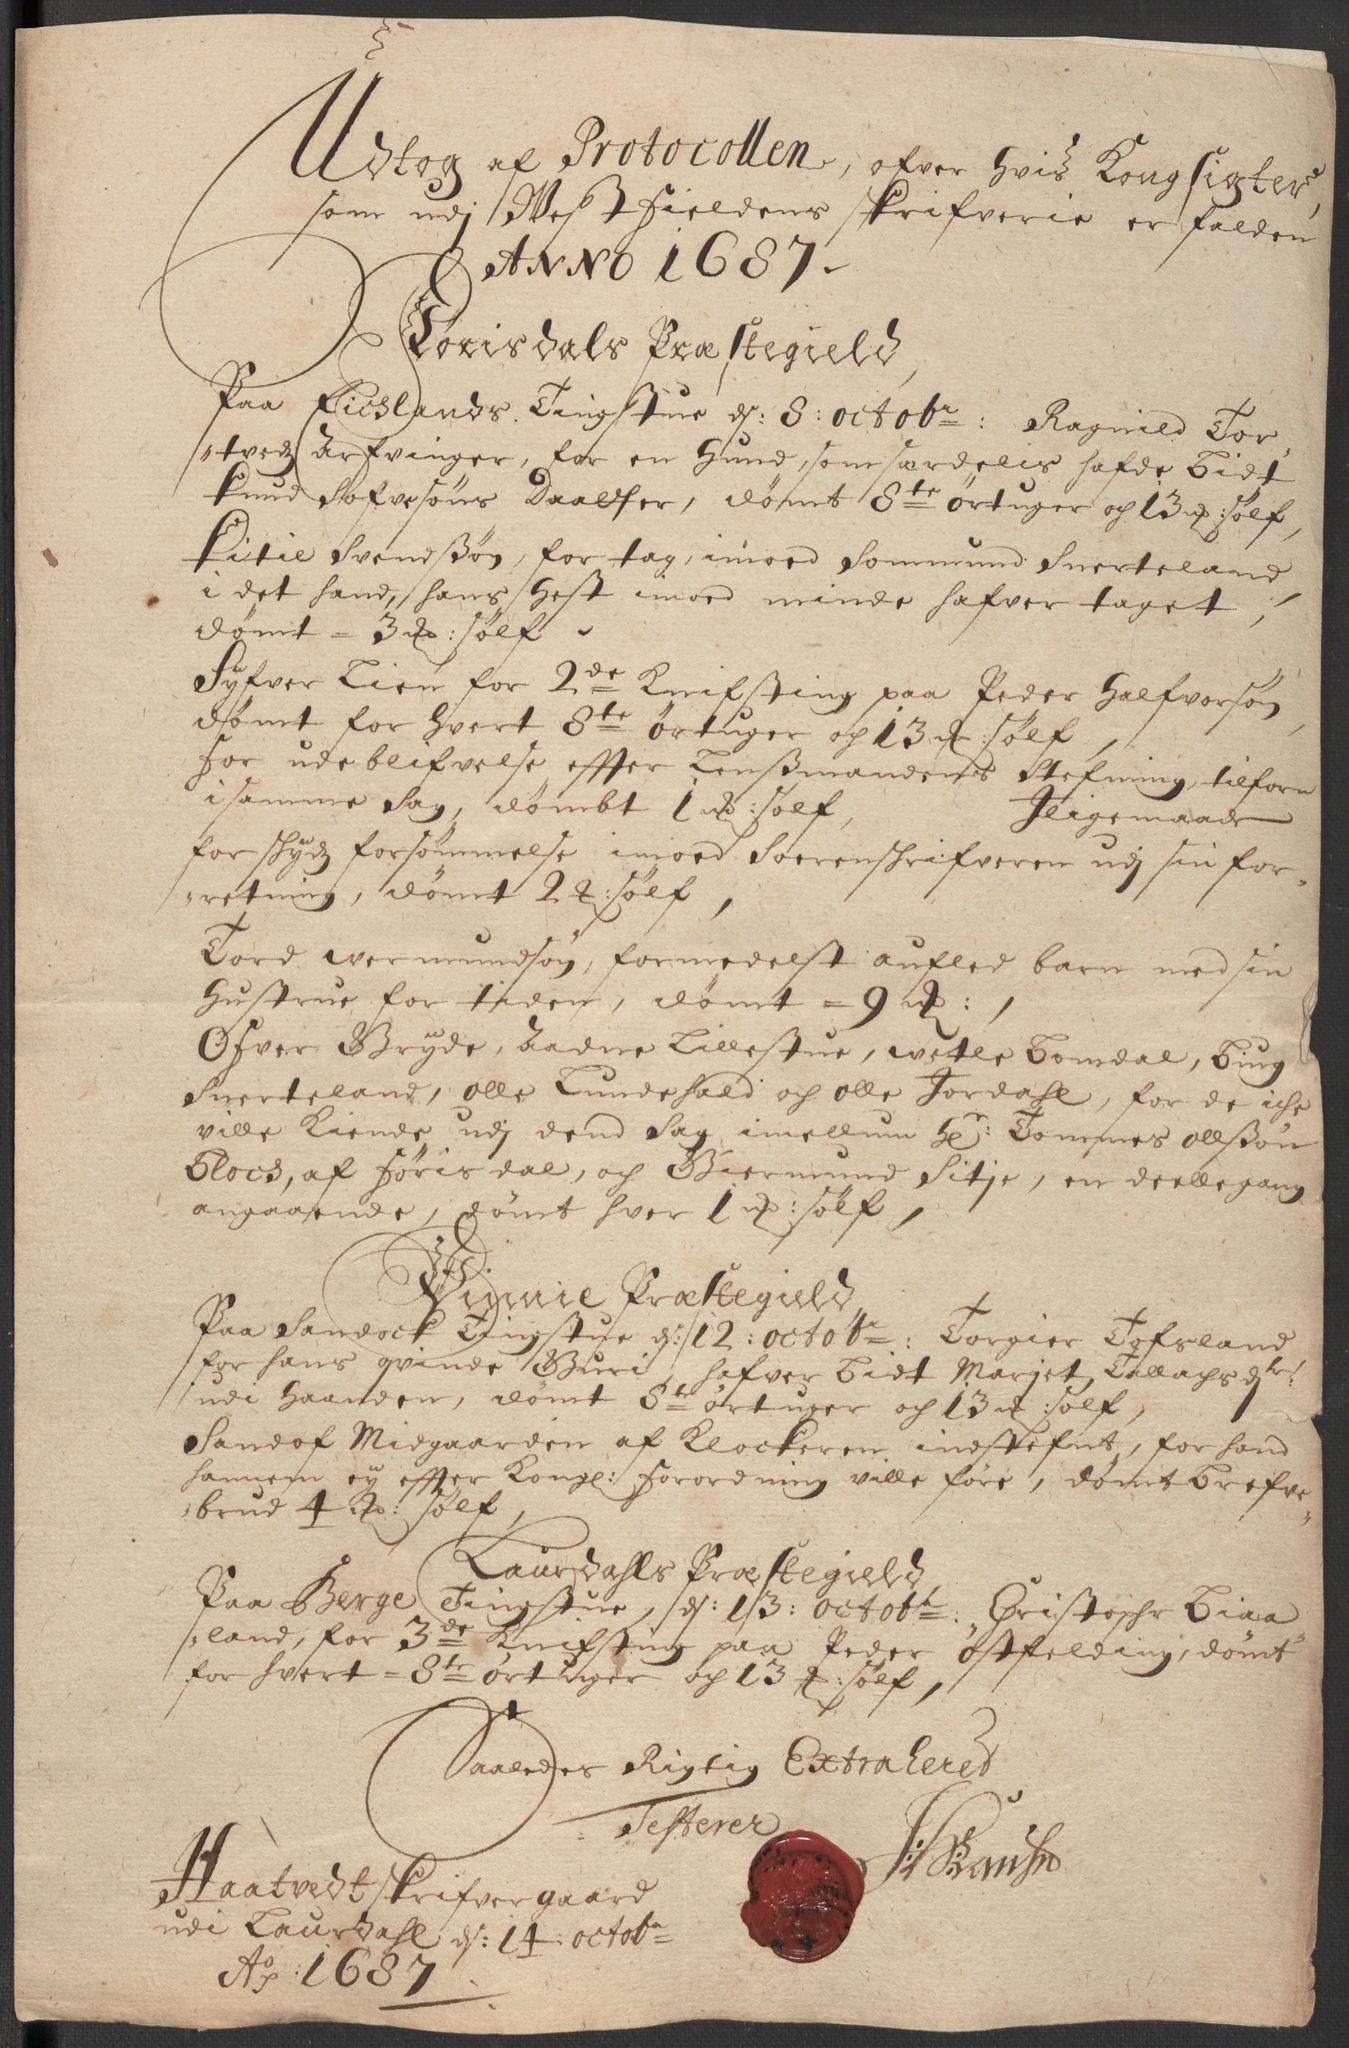 Udtog af Protocollen, ofver hvis Kongsigter,
som udj West Fieldens Skrifverie er falden
ANNO 1687
Förisdals Præstegield,
Paa Ticslands Tingstue ds: 8: octobr: Ragnild Tor
tvedz Arfvinger, for en Hund, som særdelis hafde bidt
Knud Sofvesöns Daatter, dömt 8te örtuger och 13 :sölf,
Kitil Svendssön, for tag, imoed Sommund Snerteland
i det hand, hans Hest imoed minde hafver taget,
dömt = 3 :sölf
Syfver Lien for 2de Knifsting paa Peder Halfvorsön,
dömt for hvert 8te örtuger och 13 :sölf,
for udeblifvelse effter Lenssmandens Stefning tilforn
i samme Sag, dömbt 1 :sölf, Iligemaade
for schydz forsömmelse imoed Soerenschrifveren udj sin for-
retning, dömt 2 :sölf,
Tord Wermundsön, formedelst aufled barn med sin
Hustrue for tiden, dömt = 9 :,
Ofver Bryde, Aadne Lillestue, Wetle Bomdal,
Snerteland, Olle Lundehald och Olle Jordahl, for de iche
ville Kiende udj dend Sag imellum Hr: Tommes Ollssön
Block, af Förisdal, och Giermund Sitje, en deellegang
angaaende, dömt hver 1 :sölf,
Vinnie Præstegield
Paa Sandock Tingstue ds: 12: octobr: Torgier Tofsland
for hans qvinde Guri, hafver bidt Marjet Tallachsdtr:
udi Haanden, dömt 8te örtuger och 13 :sölf,
Sandof Midgaarden af Klockeren indstefnt, for hand
hannem ey effter Kongl: Forordning ville före, dömt brefve-
brud 4 : sölf,
Laurdahls Præstegield
Paa Berge Tingstue, ds: 13: octobr: Christopher Biaa
land, for 3de Knifsting paa Peder Östfelding, dömt
for hvert = 8te örtuger och 13 :sölf,
Saaledes Rigtig Extraheret
Testerer
Haatvedt Skrifvergaard
udi Laurdahl ds: 14 octobr
Ao: 1687